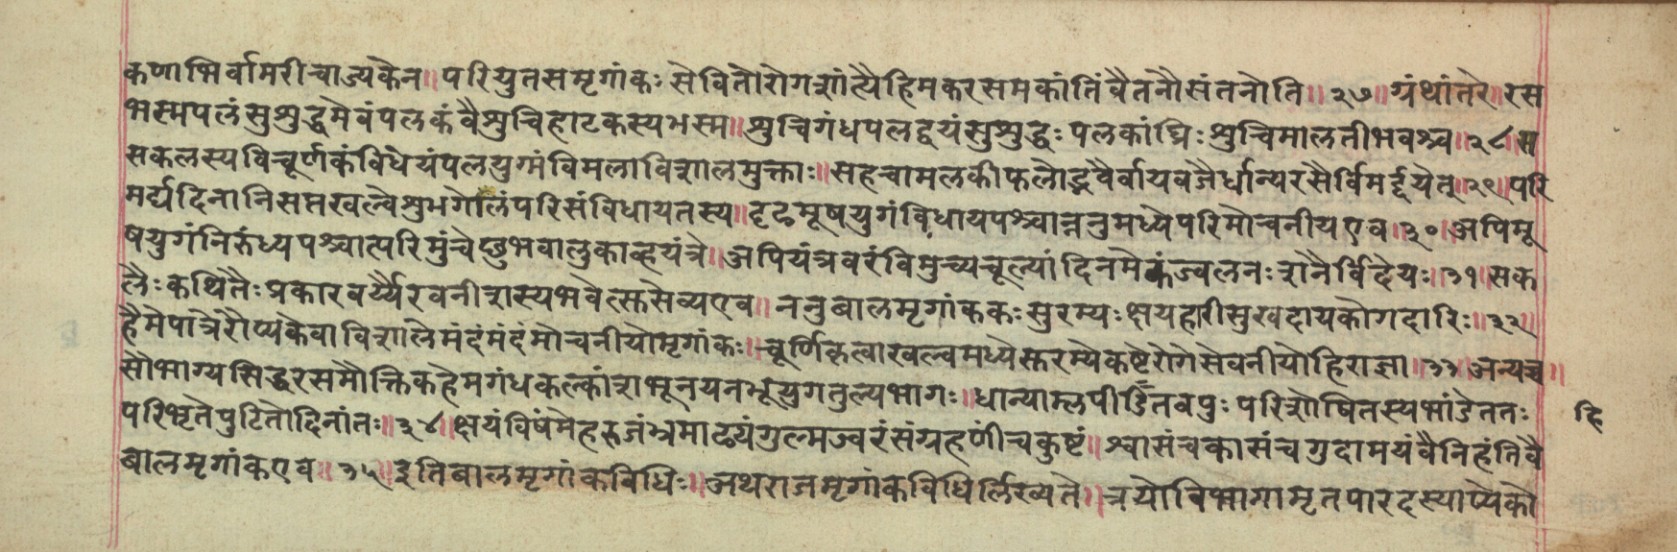 कणाभिर्वामरीचाज्यकेन॥ परियुतसमृगांकः सेवितोरोगशांत्यैहिमकरसमकांतिंवैतनौसंतनोति॥२७॥ ग्रंथांतरे॥रस
भस्मपलंसुशुद्धमेवंपलकंवैशुचिहाटकस्यभस्म॥ शुचिगंधपलद्वयंसुशुद्धः पलकांघ्रिः शुचिमालतीभवश्च॥२८॥स
सकलस्यविचूर्णकंविधेयंपलयुग्मंविमलाविशालमुक्ताः॥ सहचामलकीफलोद्भवैर्वायवजैर्धान्यरसैर्विमर्द्दयेत्॥२९॥परि
मर्द्यदिनानिसप्तखल्वेशुभगोलंपरिसंविधायतस्य॥ दृढमूषयुगंविधायपश्चान्ननुमध्येपरिमोचनीयएव॥३०॥अपिमू
षयुगंनिरुंध्यपश्चात्परिमुंचेछुभवालुकाव्हयंत्रे॥ अपियंत्रवरंविमुच्यचूल्यांदिनमेकंज्वलनः शनैर्विदेयः॥३१॥सक
लैः कथितैः प्रकारवर्य्यैरवनीशस्यभवेत्ससेव्यएव॥ ननुबालमृगांककः सुरम्यः क्षयहारीसुखदायकोगदारिः॥३२॥
हैमेपात्रेरौप्यकेवाविशालेमंदंमंदंमोचनीयोमृगांकः॥ चूर्णिकृत्वाखल्वमध्येसुरम्येकष्टेरोगेसेवनीयोहिराज्ञा॥३३॥अन्यच्च॥
सौभाग्यसिद्धरसमौक्तिकहेमगंधकल्कांशभूनयनभूयुगतुल्यभागः॥ धान्याम्लपीडितवपुः परिशोषितस्यभांडेततः
हि
परिभृतेपुटितोदिनांतः॥३४॥ क्षयंविषंमेहरुजंभ्रमाढ्यंगुल्मज्वरंसंग्रहणींचकुष्टं॥ श्वासंचकासंचगुदामयंवैनिहंतिवै
बालमृगांकएव॥३५॥ इतिबालमृगांकविधिः॥ अथराजमृगांकविधिर्लिख्यते॥ त्रयोविभागामृतपारदस्याप्येको